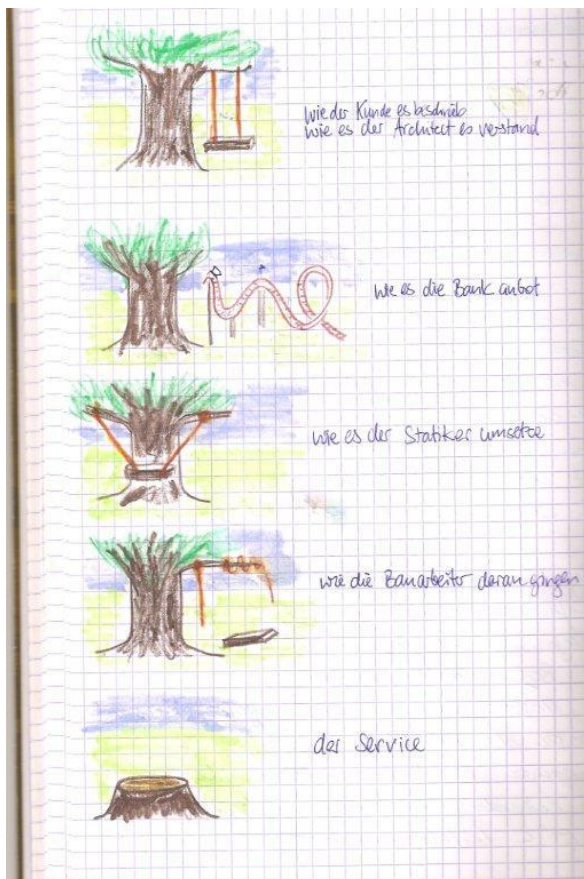 wie der Kunde es beschrieb
wie es der Architect es verstand
wie es die Bank anbot
wie es der Statiker umsetze
wie die Bauarbeiter daran gingen
der Service